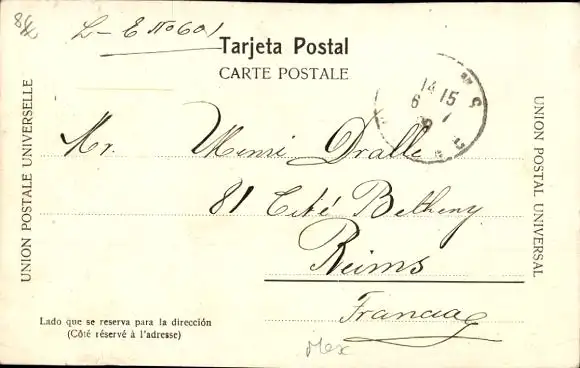 L-E No 601
Tarjeta Postal
CARTE POSTALE
UNION POSTALE UNIVERSELLE
UNION POSTAL UNIVERSAL
14 15
6 7
Mr. Henri Dralle
81 Cité Betheny
Reims
Francia
Lado que se reserva para la dirección
(Côté réservé à l'adresse)
Mex